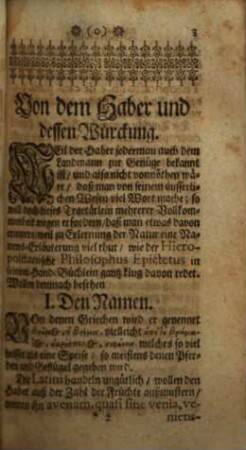 (o) 3
Von dem Haber und
dessen Würckung.
WEil der Haber jederman auch dem
Landmann zur Genüge bekannt
ist/ und also nicht vonnöthen wä-
re/ daß man von seinem äusserli-
chen Wesen viel Wort mache; so
will doch dieses Tractätlein mehrerer Vollkom-
menheit wegen erfordern/ daß man etwas davon
weil zu Erlernung der Natur eine Na-
mens-Erläuterung viel thut/ wie der Hiero-
politanische Philosophus Epictetus in
seinem Hand-Büchlein gantz klug davon redet.
Wollen demnach besehen
I. Den Namen.
VOn denen Griechen wird er genennet
vielleicht
welches so viel
heisset als eine Speise/ so meistens denen Pfer-
den und Geflügel gegeben wird.
Die Latini handeln ungütlich/ wollen den
Haber auß der Zahl der Früchte außmustern/
nennen ihn avenam, quasi sine venia, ve-
niens-